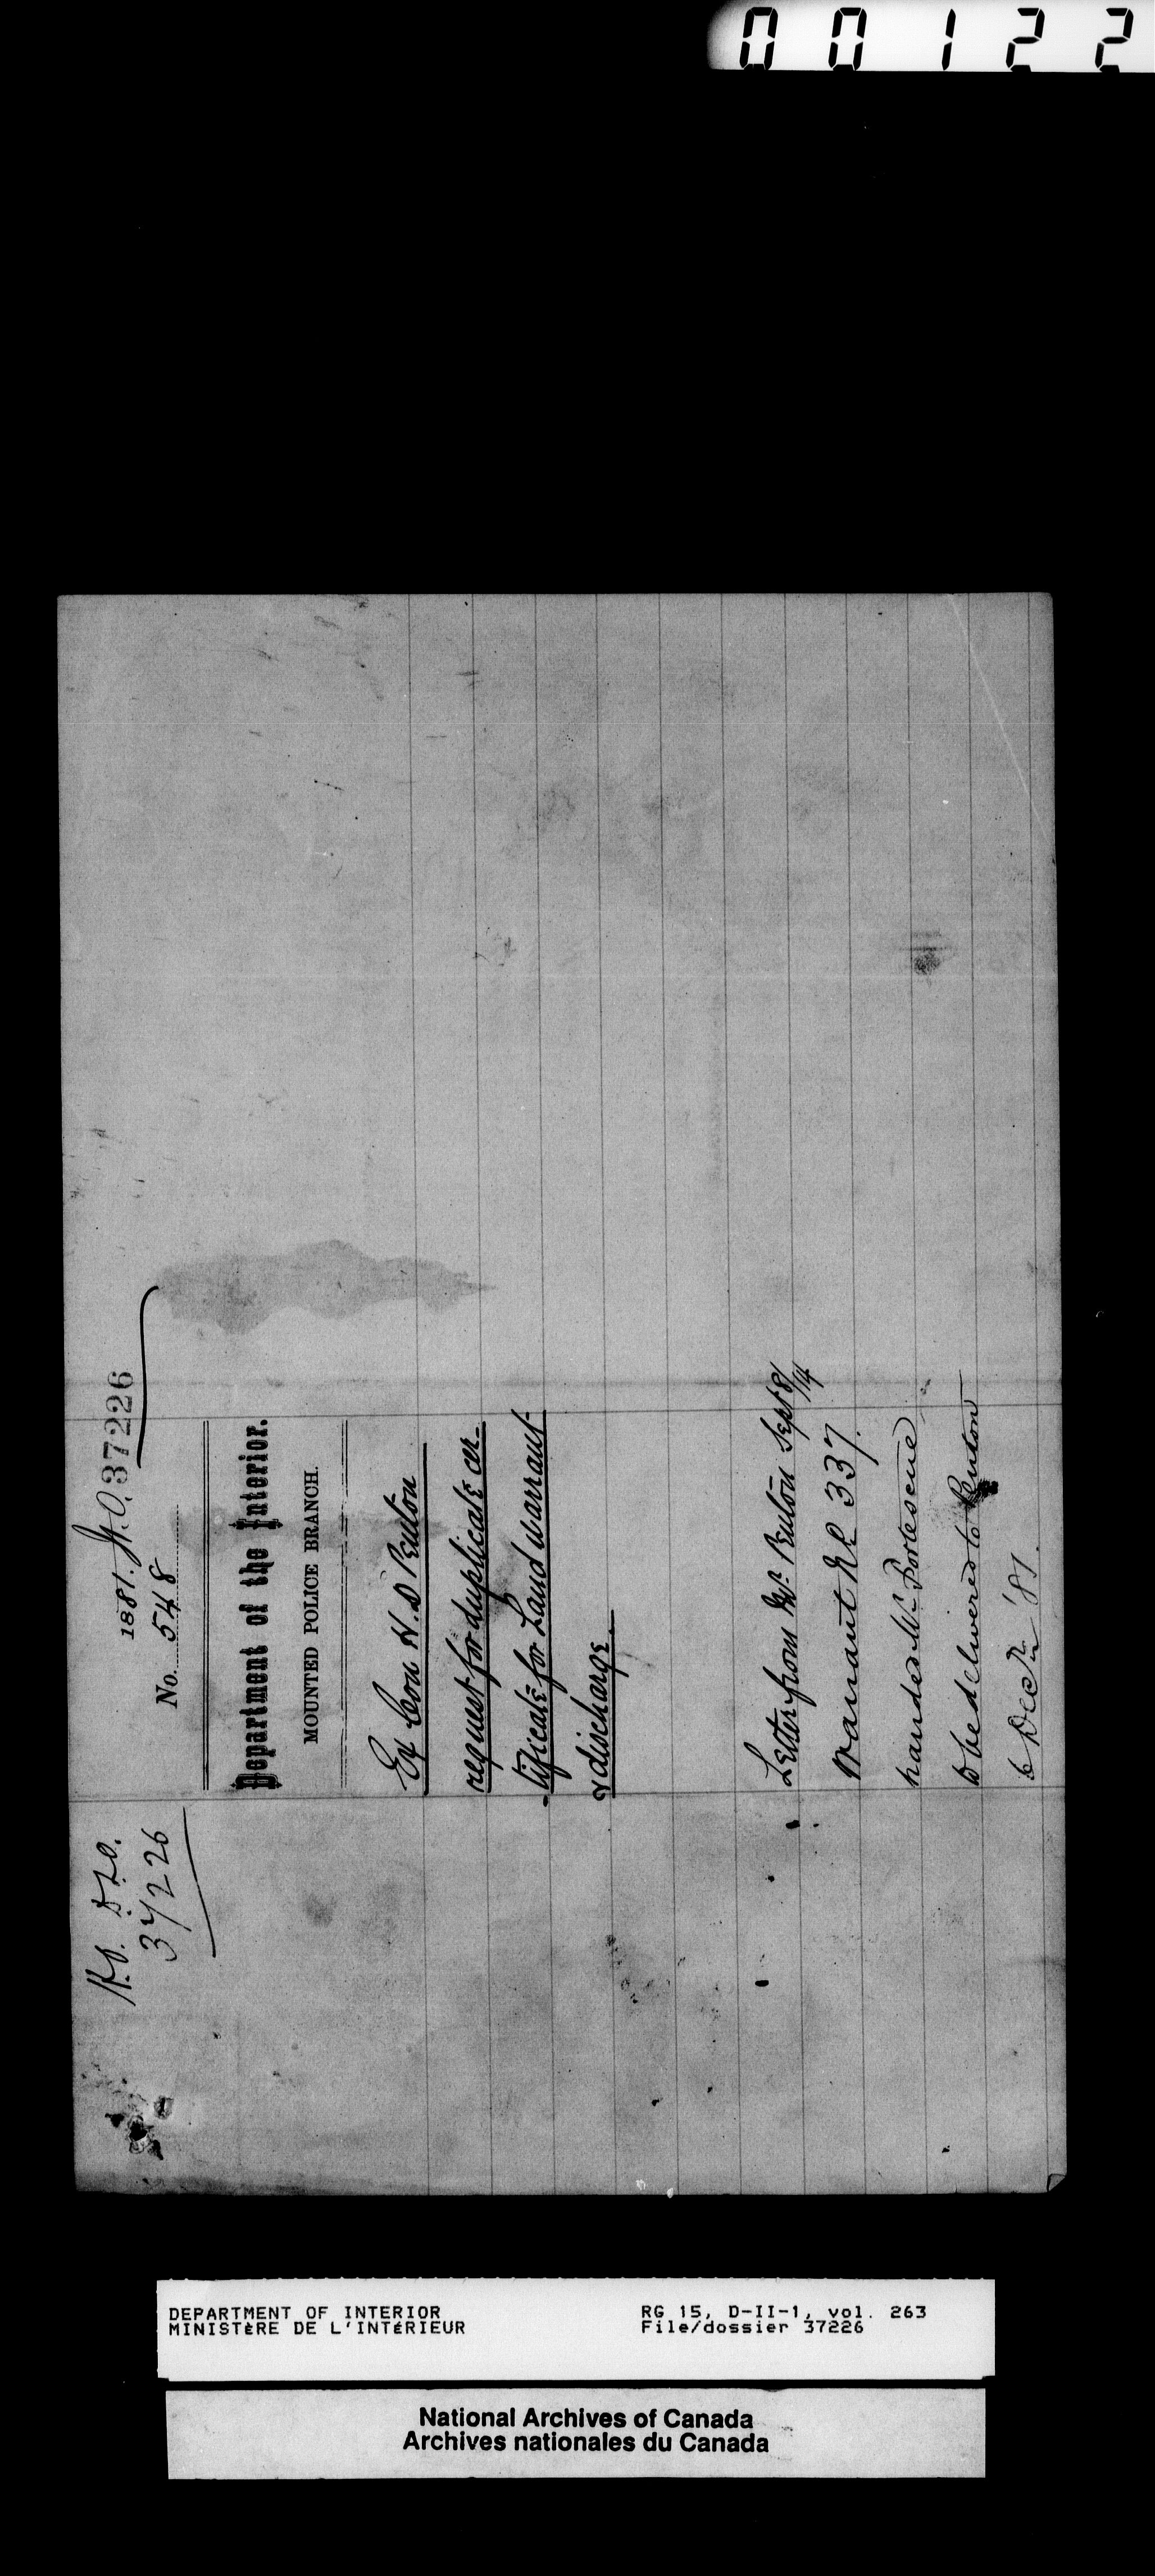 00122
H.O. D.L.O.
37226
1881. 37226
No. 548
Department of the Interior.
MOUNTED POLICE BRANCH.
Ex Con H. D Penton
request for duplicate cer-
-tificate for Land warrant
& discharge.
Letter from Mr Penton Sept 8/14
Warrant No 337.
handed Mr Fortescue
to be delivered to Penton
6 Decr '81.
DEPARTMENT OF INTERIOR
MINISTÈRE DE L'INTÉRIEUR
RG 15, D-II-1, vol. 263
File/dossier 37226
National Archives of Canada
Archives nationales du Canada